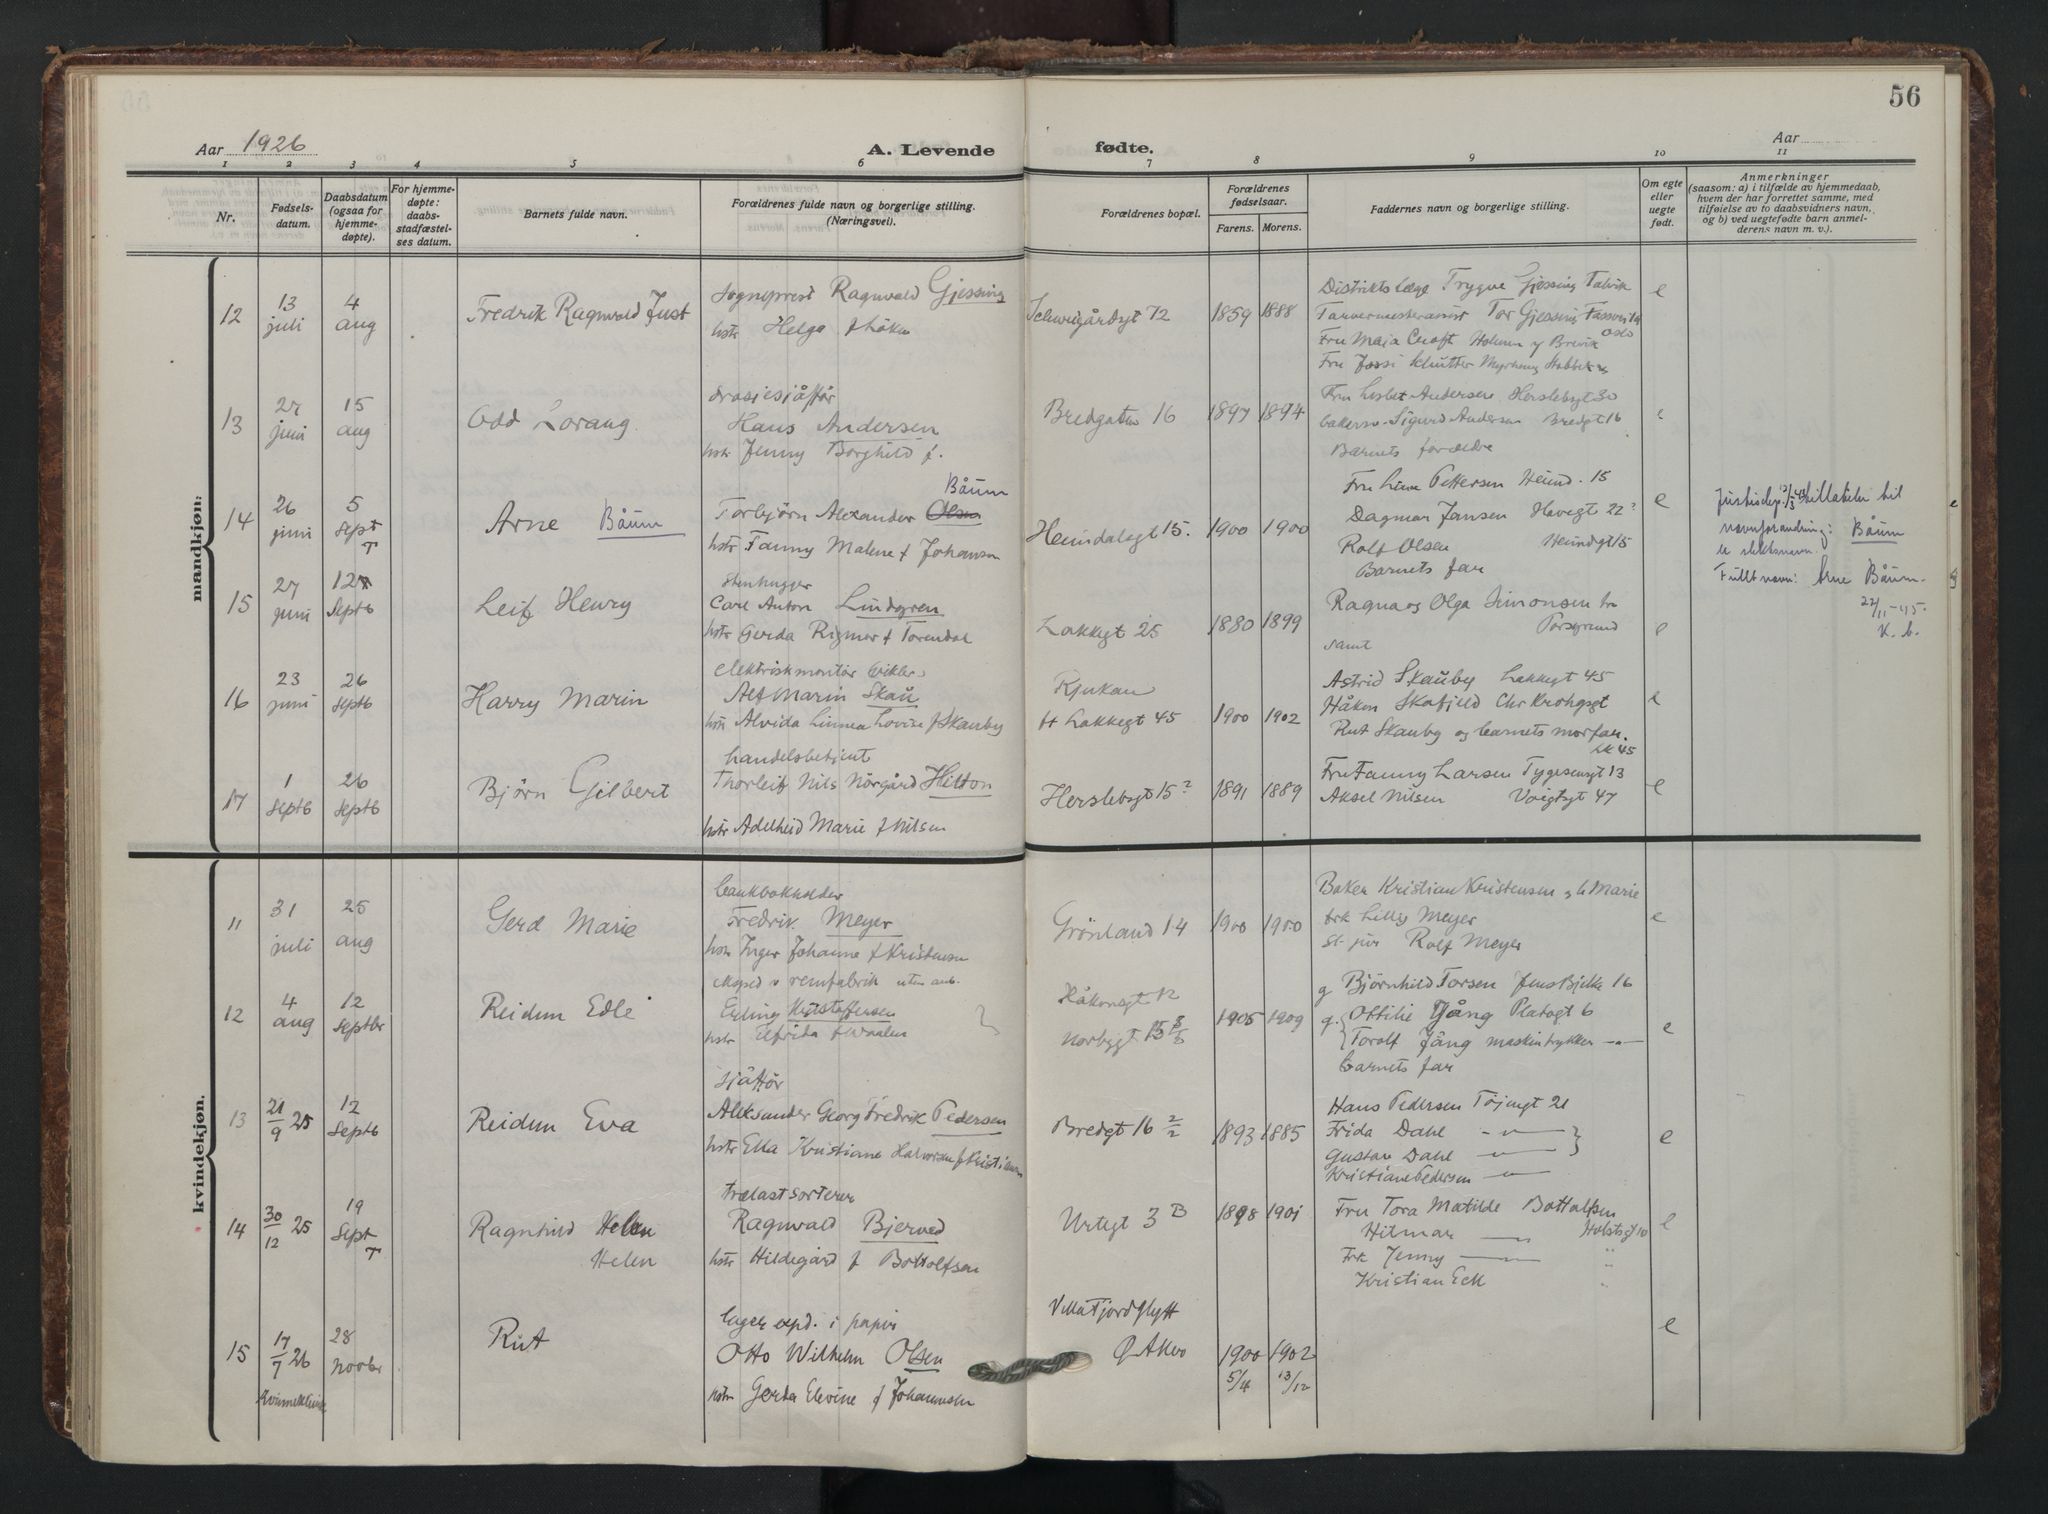 56
Aar 1926
A. Levende
fødte.
Aar
1 2 3 4 5 6 7 8 9 10 11
Nr.
Fødsels-
datum.
Daabsdatum
(ogsaa for
hjemme-
døpte).
For hjemme-
døpte:
daabs-
stadfæstel-
ses datum.
Barnets fulde navn.
Forældrenes fulde navn og borgerlige stilling.
(Næringsvei).
Forældrenes bopæl.
Forældrenes
fødselsaar.
Farens. Morens.
Faddernes navn og borgerlige stilling.
Om egte
eller
uegte
født.
Anmerkninger
(saasom: a) i tilfælde av hjemmedaab,
hvem der har forrettet samme, med
tilføielse av to daabsvidners navn,
og b) ved uegtefødt barn anmel-
derens navn m. v.).
mandkjøn:
12
13
juli
4
aug
Fredrik Ragnvald Just
Sogneprest Ragnvald Gjessing
hstr Helga f
Schweigårdsgt 72
1859 1888
Distriktslæge Trygve Gjessing Talvik
Tor Gjessing
Oslo
Fru Maja Croft Holmen pr Brevik
Fru
e
13
27
juni
15
aug
Odd Lorang
drosjesjåffør
Hans Andersen
hstr Jenny Borghild f.
Bredgaten 16
1897 1894
Fru Lisbet Andersen Herslebsgt 30
Sigurd Andersen Bredgt 16
Barnets forældre
e
14
26
juni
5
sept
T
Arne Båum
Båum
Torbjörn Alexander Olsen
hstr Fanny Malene f Johansen
Heimdalsgt 15.
1900 1900
Fru Lina Pettersen Heimd. 15
Dagmar Jansen Havegt 22
Rolf Olsen Heimdgt 15
Barnets far
e
navneforandring: Båum
er slektsnavn.
Fullt navn: Arne Båum.
22/11-45.
K. b.
15
27
juni
12
Septb
Leif Henry
Stenhugger
Carl Anton Lindgren
hstr Gerda Rigmor f Torendal
Lakkegt 25
1880 1899
Ragna og Olga Simonsen
Porsgrund
samt
e
16
23
juni
26
septb
Harry Marin
elektriskmontör
Alf Marin Skau
hstr Alvida Linnea Lovise f Skauby
Rjukan
Lakkegt 45
1900 1902
Astrid Skauby Lakkegt 45
Håkon Skofjeld Chr Krohgsgt
Rut Skauby og barnets morfar.
Lk 45
e
17
1
septb
26
septb
Björn Gilbert
handelsbetjent
Thorleif Nils Nörgård Hilton
hstr Adelheid Marie f Nilsen
Herslebsgt 15
1891 1889
Fru Fanny Larsen Tygesensgt 13
Aksel Nilsen Voigtsgt 47
e
kvindekjøn.
11
31
juli
25
aug
Gerd Marie
bankbokholder
Fredrik Meyer
hstr Inger Johanne f Kristensen
Grönland 14
1900 1900
Baker Kristian Kristensen og h Marie
frk Lilly Meyer
st. jur Rolf Meyer
e
12
4
aug
12
septbr
Reidun Edle
eksped v remfabrik uten arb.
Erling Kristoffersen
hstr Elfrida f Waalen
Håkonsgt 12
Norbygt 15
1905 1909
g Björnhild Torsen Jens Bjelke 16
g. Ottilie Fjång Platogt 6
Torolf Fjång maskintrykker –"–
barnets far
e
13
21/9 25
12
septb
Reidun Eva
sjåffør
Aleksander Georg Fredrik Pedersen
hstr Ella Kristiane Halvorsen f Kristiansen
Bredgt 16
1893 1885
Hans Pedersen Töjengt 21
Frida Dahl –"–
Gustav Dahl –"–
Kristiane Pedersen –"–
e
14
30/12 25
19
sept
T
Ragnhild Helen
Helen
trælastsorterer
Ragnvald Bjerved
hstr Hildegård f Bottolfsen
Urtegt 3 B
1898 1901
Fru Tora Matilde Bottolfsen
Hilmar –"– Holstsgt 10
Frk Jenny –"– "
Kristian Eck "
e
15
17/7 26
Kvinneklinik
28
novbr
Rut
lager exped. i papir
Otto Wilhelm Olsen
hstr Gerda Elevine f Johannesen
Villa Fjordglytt
Ø Aker
1900 1902
5/4 13/12
e